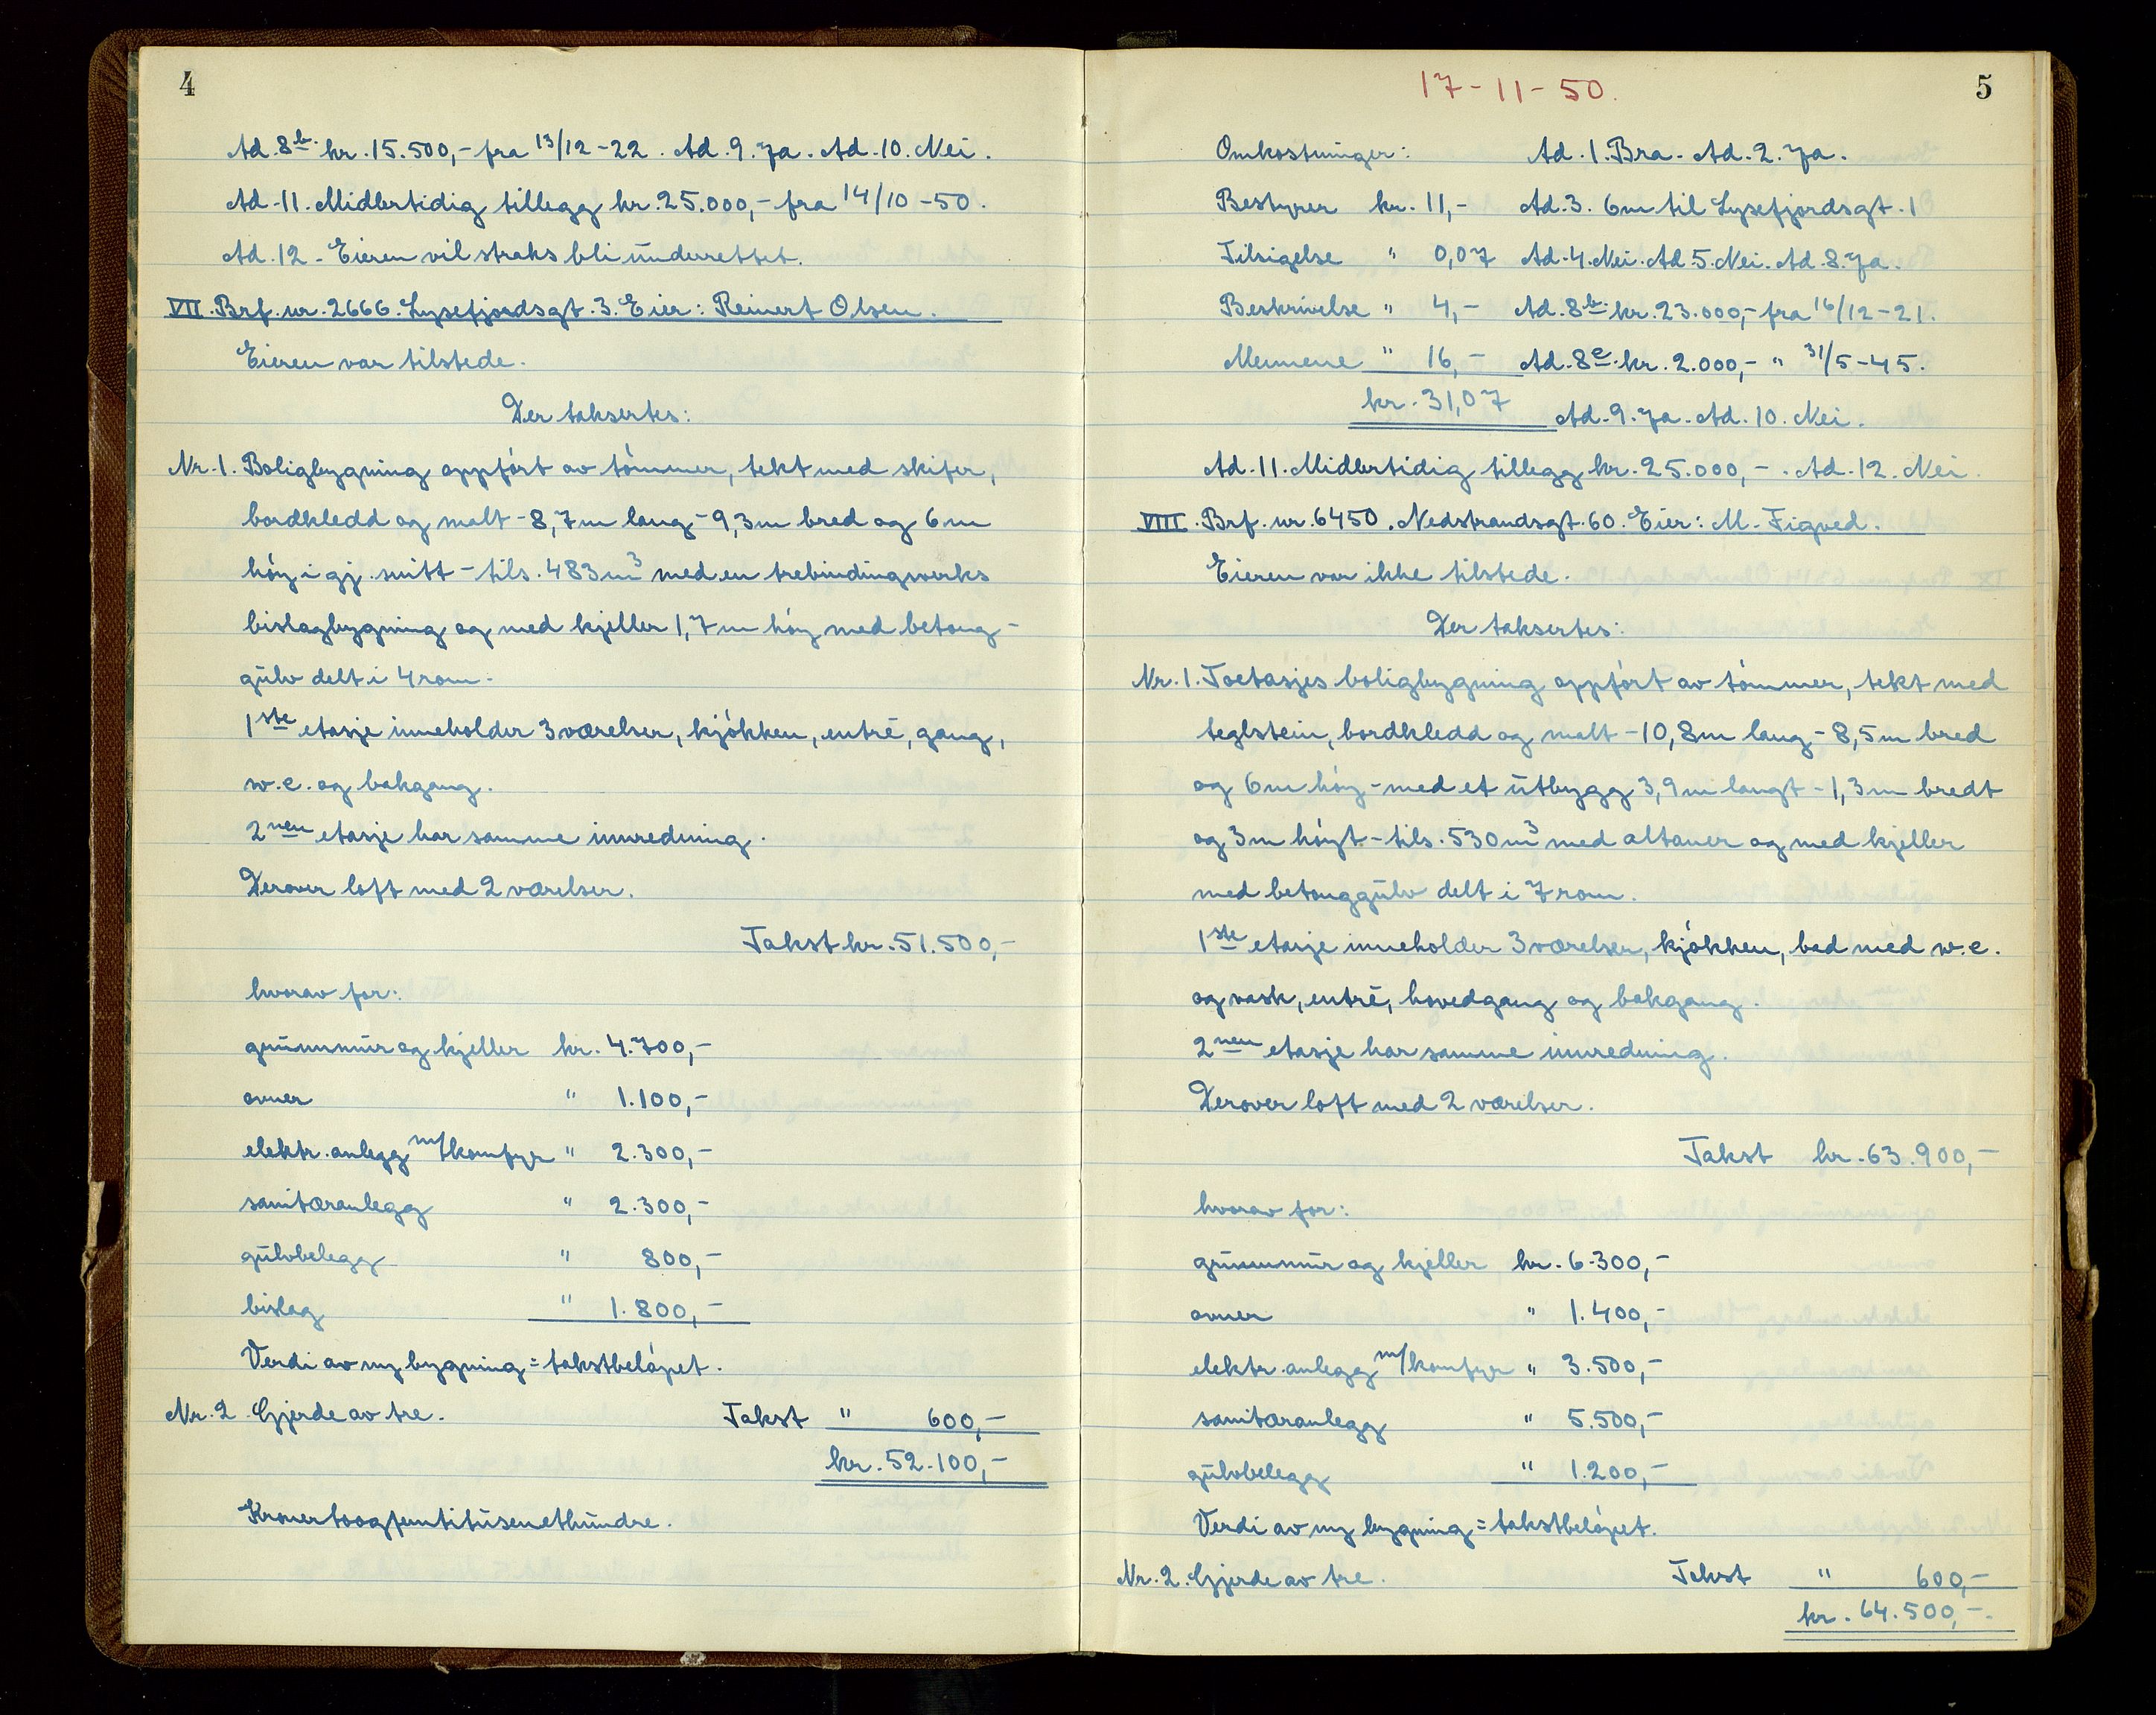 4
Ad. 8b. kr. 15.500,- fra 13/12-22. Ad. 9. Ja. Ad. 10. Nei.
Ad. 11. Midlertidig tillegg kr. 25.000,- fra 14/10-50.
Ad. 12. Eieren vil straks bli underrettet.
VII. Brf. nr. 2666. Lysefjordsgt. 3. Eier: Reinert Olsen.
Eieren var tilstede.
Der taksertes:
Nr. 1. Boligbygning oppført av tømmer, tekt med skifer,
bordkledd og malt - 8,7m lang - 9,3m bred og 6m
høy i gj. snitt - tils. 483m³ med en trebindingsverks
bislagbygning og med kjeller 1,7m høy med betong-
gulv delt i 4 rom.
1ste etasje inneholder 3 værelser, kjøkken, entré, gang,
w.c. og bakgang.
2nen etasje har samme innredning.
Derover loft med 2 værelser.
Takst kr. 51.500,-
hvorav for:
grunnmur og kjeller kr. 4.700,-
ovner " 1.100,-
elektr. anlegg m/komfyr " 2.300,-
sanitæranlegg " 2.300,-
gulvbelegg " 800,-
bislag " 1.800,-
Verdi av ny bygning = takstbeløpet.
Nr. 2. Gjerde av tre. Takst " 600,-
kr. 52.100,-
Kronertoogfemtitusenethundre.
17-11-50.
5
Omkostninger: Ad. 1. Bra. Ad. 2. Ja.
Bestyrer kr. 11,- Ad. 3. 6m til Lysefjordsgt. 1
Tilsigelse " 0,07 Ad. 4. Nei. Ad. 5. Nei. Ad. 8. Ja.
Beskrivelse " 4,- Ad. 8b. kr. 23.000,- fra 16/12-21.
Mennene " 16,- Ad. 8c. kr. 2.000,- " 31/5-45.
kr. 31,07 Ad. 9. Ja. Ad. 10. Nei.
Ad. 11. Midlertidig tillegg kr. 25.000,-. Ad. 12. Nei.
VIII. Brf. nr. 6450. Nedstrandsgt. 60. Eier: M. Figved.
Eieren var ikke tilstede.
Der taksertes:
Nr. 1. Toetasjes boligbygning oppført av tømmer, tekt med
teglstein, bordkledd og malt - 10,8m lang - 8,5m bred
og 6m høy - med et utbygg 3,9m langt - 1,3m bredt
og 3m høyt - tils. 530m³ med altaner og med kjeller
med betonggulv delt i 7 rom.
1ste etasje inneholder 3 værelser, kjøkken, bad med w.c.
og vask, entré, hovedgang og bakgang.
2nen etasje har samme innredning.
Derover loft med 2 værelser.
Takst kr. 63.900,-
hvorav for:
grunnmur og kjeller kr. 6.300,-
ovner " 1.400,-
elektr. anlegg m/komfyr " 3.500,-
sanitæranlegg " 5.500,-
gulvbelegg " 1.200,-
Verdi av ny bygning = takstbeløpet.
Nr. 2. Gjerde av tre. Takst " 600,-
kr. 64.500,-.